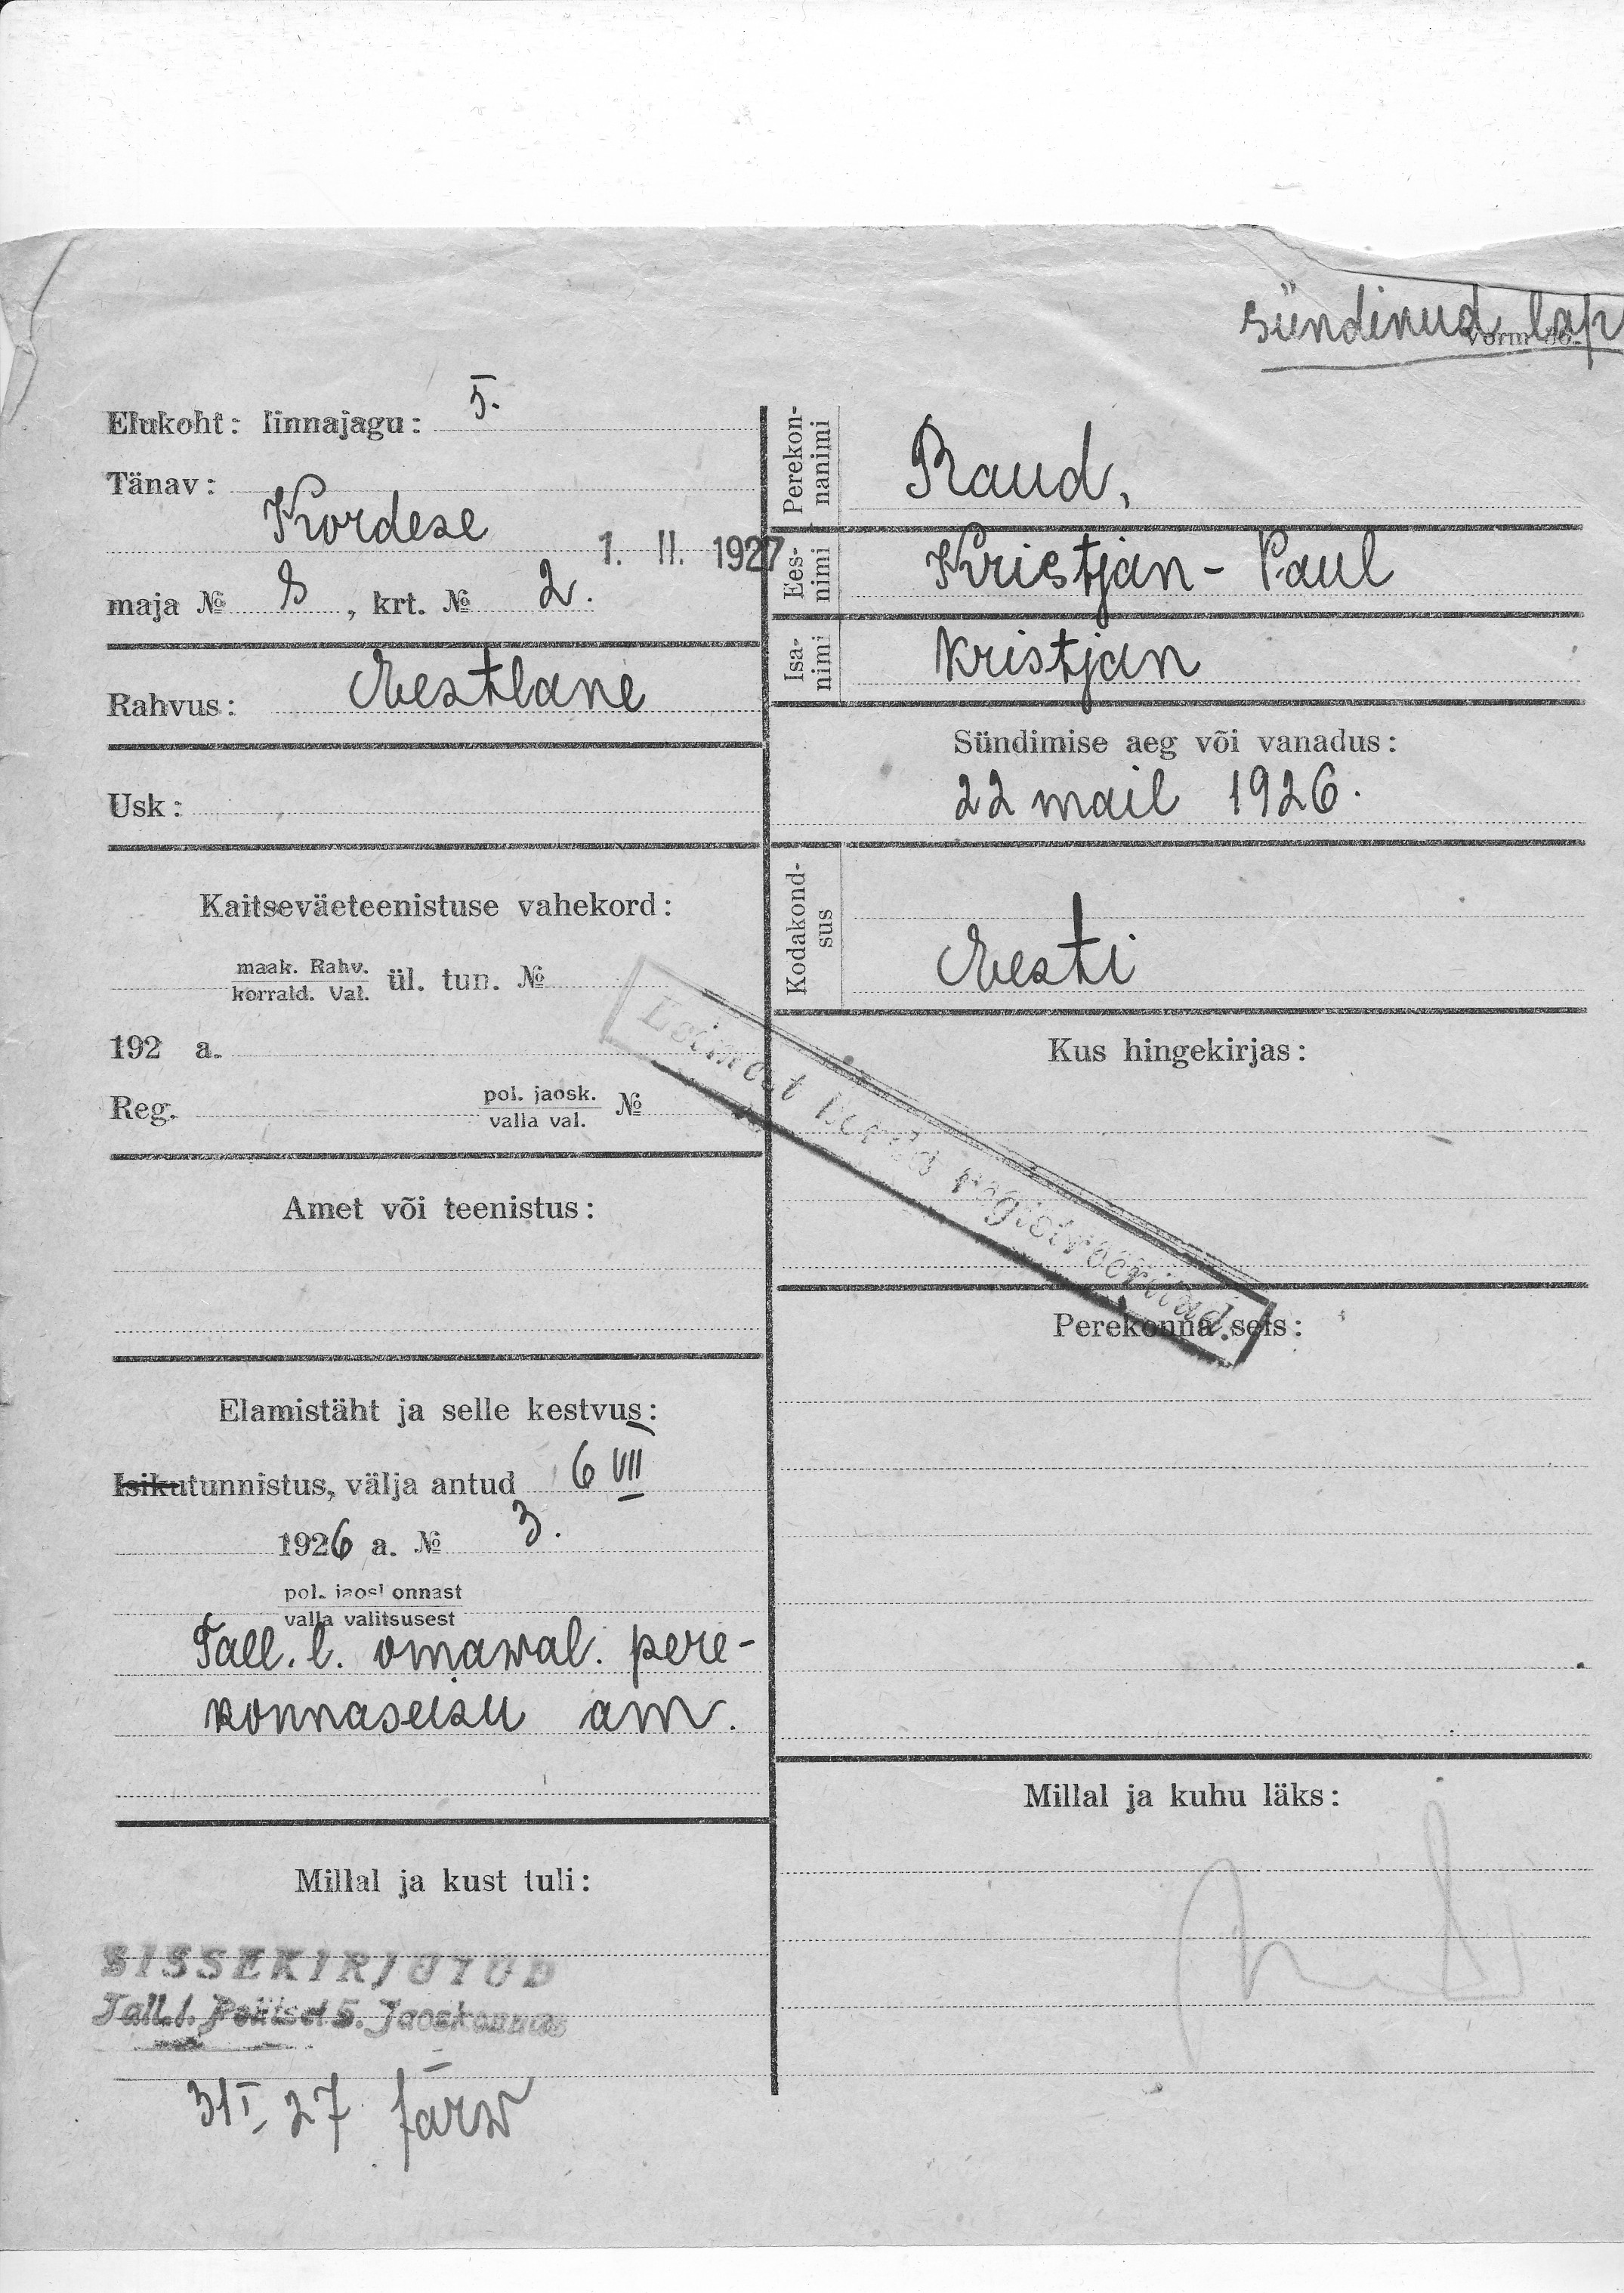 sündinud lap
Vorm
Elukoht: linnajagu: 5.
Tänav:
Kordese
1. II. 1927
maja № 8, krt. № 2.
Rahvus: Eestlane
Usk:
Kaitseväeteenistuse vahekord:
maak. Rahv.
korrald. Val.
ül. tun. №
192 a.
Reg. pol. jaosk. №
valla val.
Amet või teenistus:
Elamistäht ja selle kestvus:
Isikutunnistus, välja antud 6 VII
1926 a. № 3.
pol. jaoskonnast
valla valitsusest
Tall. l. omawal. pere-
konnaseisu am.
Millal ja kust tuli:
SISSEKIRJUTUD
Tall. l. Politsei 5. Jaoskonnas
31 I 27 Järw
Perekon-
nanimi
Raud,
Ees-
nimi
Kristjan-Paul
Isa-
nimi
Kristjan
Sündimise aeg või vanadus:
22 mail 1926.
Kodakond-
sus
Eesti
Kus hingekirjas:
Esimest korda registreeritud.
Perekonna seis:
Millal ja kuhu läks: